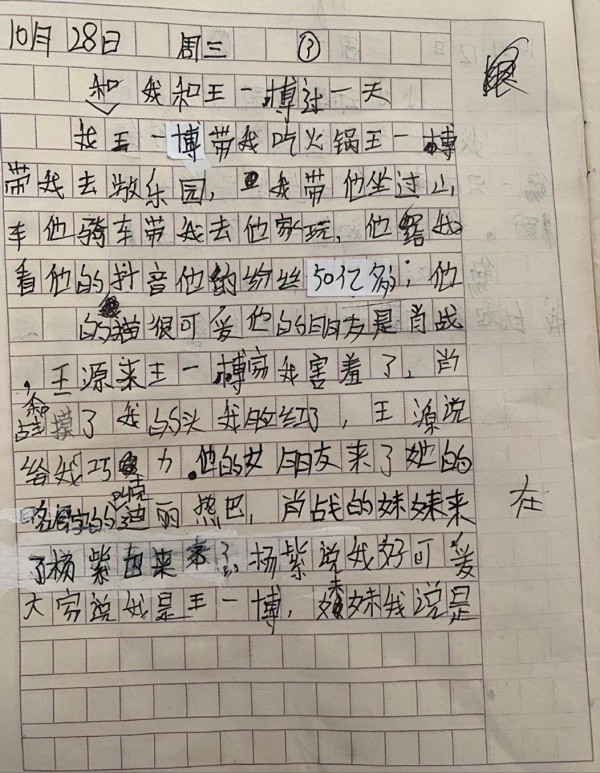 10月28日 周三 ③
和我和王一博过一天
我王一博带我吃火锅王一博
带我去游乐园,我带他坐过山
车他骑车带我去他家玩,他给我
看他的抖音他的粉丝50亿多,他
的猫很可爱他的朋友是肖战
,王源来王一博家我害羞了,肖
战摸了我的头我脸红了,王源说
给我巧克力.他的女朋友来了她的
名字的迪丽热巴,肖战的妹妹来
了杨紫也来了杨紫说我好可爱
大家说我是王一博,妹妹我说是
在